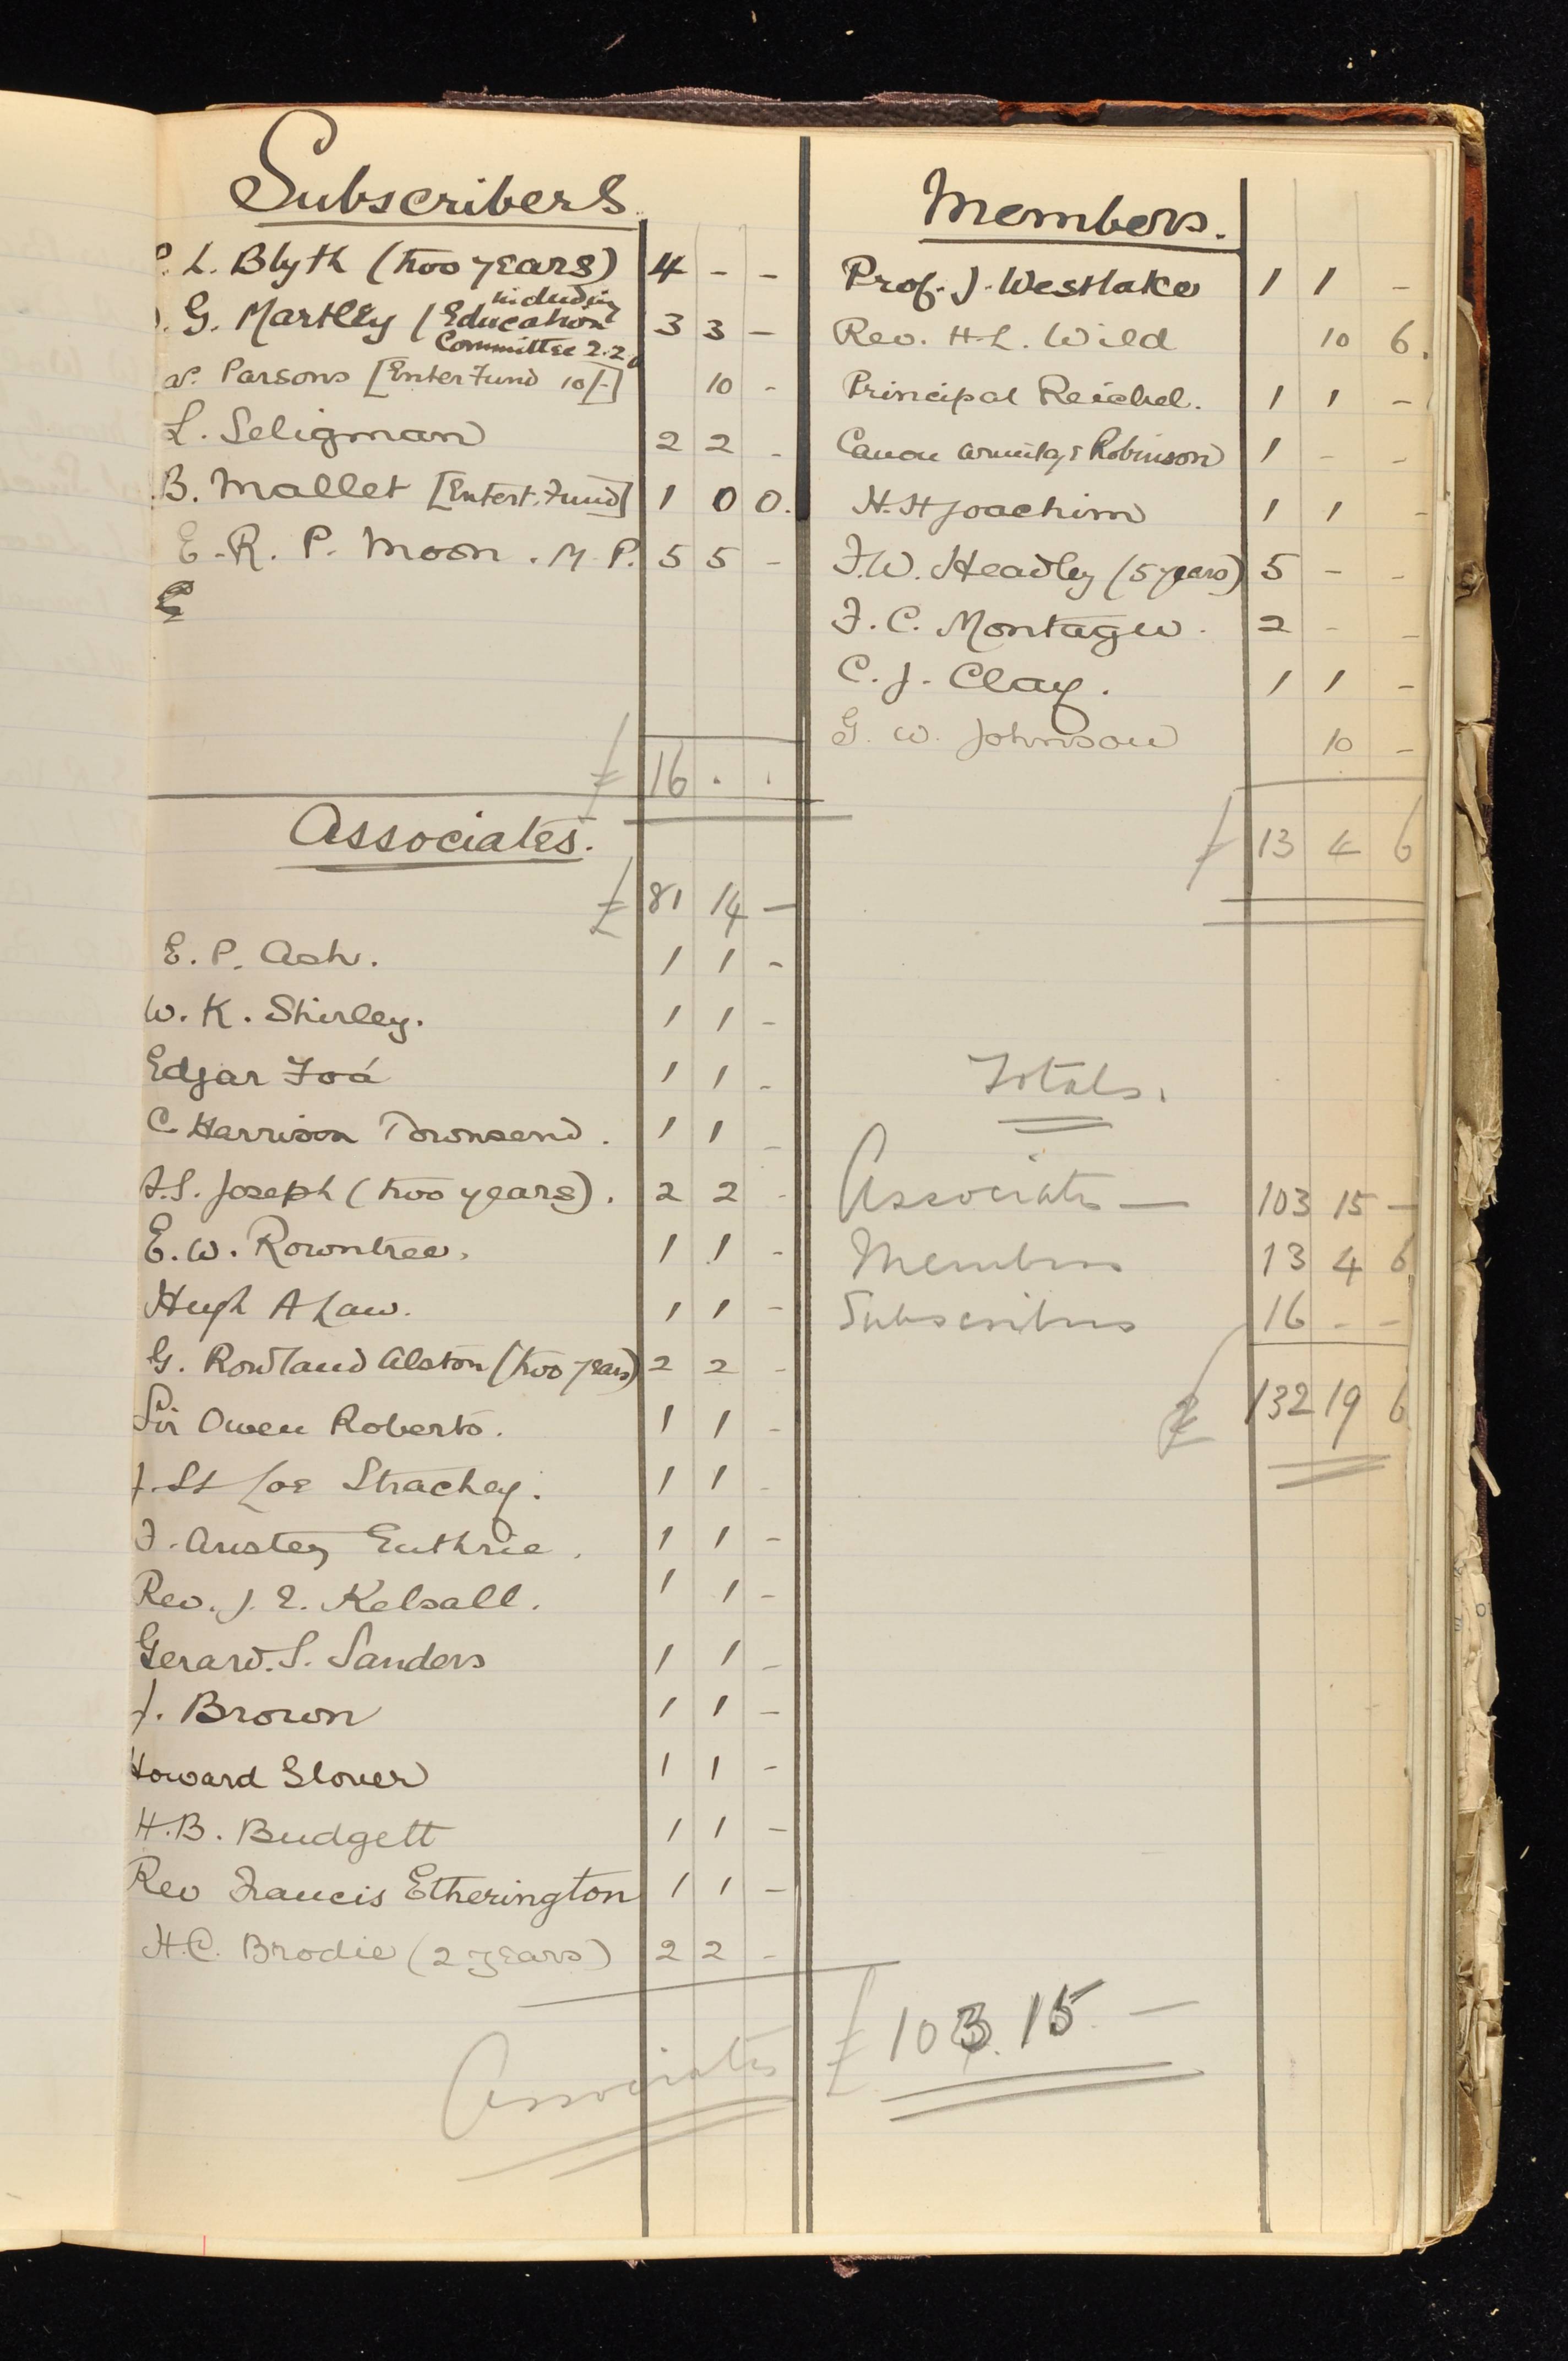 Subscribers.
P. L. Blyth (two years) 4 - -
G. Martley (Education including
Committee 2.2. 3 3 -
Parsons [Enter Fund 10/-] 10 -
L. Seligman 2 2 -
B. Mallet [Entert. Fund] 1 0 0.
E. R. P. Moon. M.P. 5 5 -
£ 16 . .
Associates.
£ 81 14 -
E. P. Ash. 1 1 -
W. K. Shirley. 1 1 -
Edgar Foá 1 1 -
C Harrison Townsend. 1 1 -
F.S. Joseph (two years). 2 2 -
E. W. Rowntree. 1 1 -
Hugh A Law. 1 1 -
G. Rowland Alston (two years) 2 2 -
Sir Owen Roberts. 1 1 -
J. St Loe Strachey. 1 1 -
F. Anstey Guthrie. 1 1 -
Rev. J. E. Kelsall. 1 1 -
Gerard. S. Sanders 1 1 -
J. Brown 1 1 -
Howard Glover 1 1 -
H.B. Budgett 1 1 -
Rev Francis Etherington 1 1 -
H.C. Brodie (2 years) 2 2 -
Associates £ 103. 15 -
Members.
Prof. J. Westlake 1 1 -
Rev. H.L. Wild 10 6.
Principal Reichel. 1 1 -
Canon Armitage Robinson 1 - -
H. H Joachim 1 1 -
F.W. Headley (5 years) 5 - -
F. C. Montague. 2 - -
C. J. Clay. 1 1 -
G. W. Johnson 10 -
£ 13 4 6
Totals.
Associates - 103 15 -
Members 13 4 6
Subscribers 16 - -
£ 132 19 6